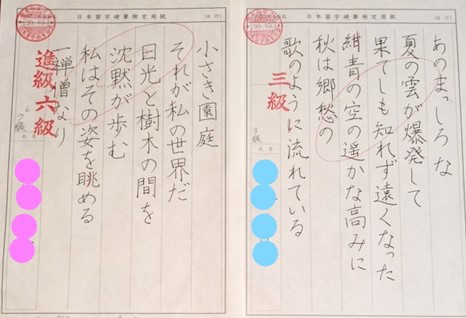 日本習字硬筆検定用紙
あのまっしろな
夏の雲が爆発して
果てしも知れず遠くなった
紺青の空の遥かな高みに
秋は郷愁の
歌のように流れている
三級
日本習字硬筆検定用紙
小さき園庭
それが私の世界だ
日光と樹木の間を
沈黙が歩む
私はその姿を眺める
一禅僧なり
進級六級